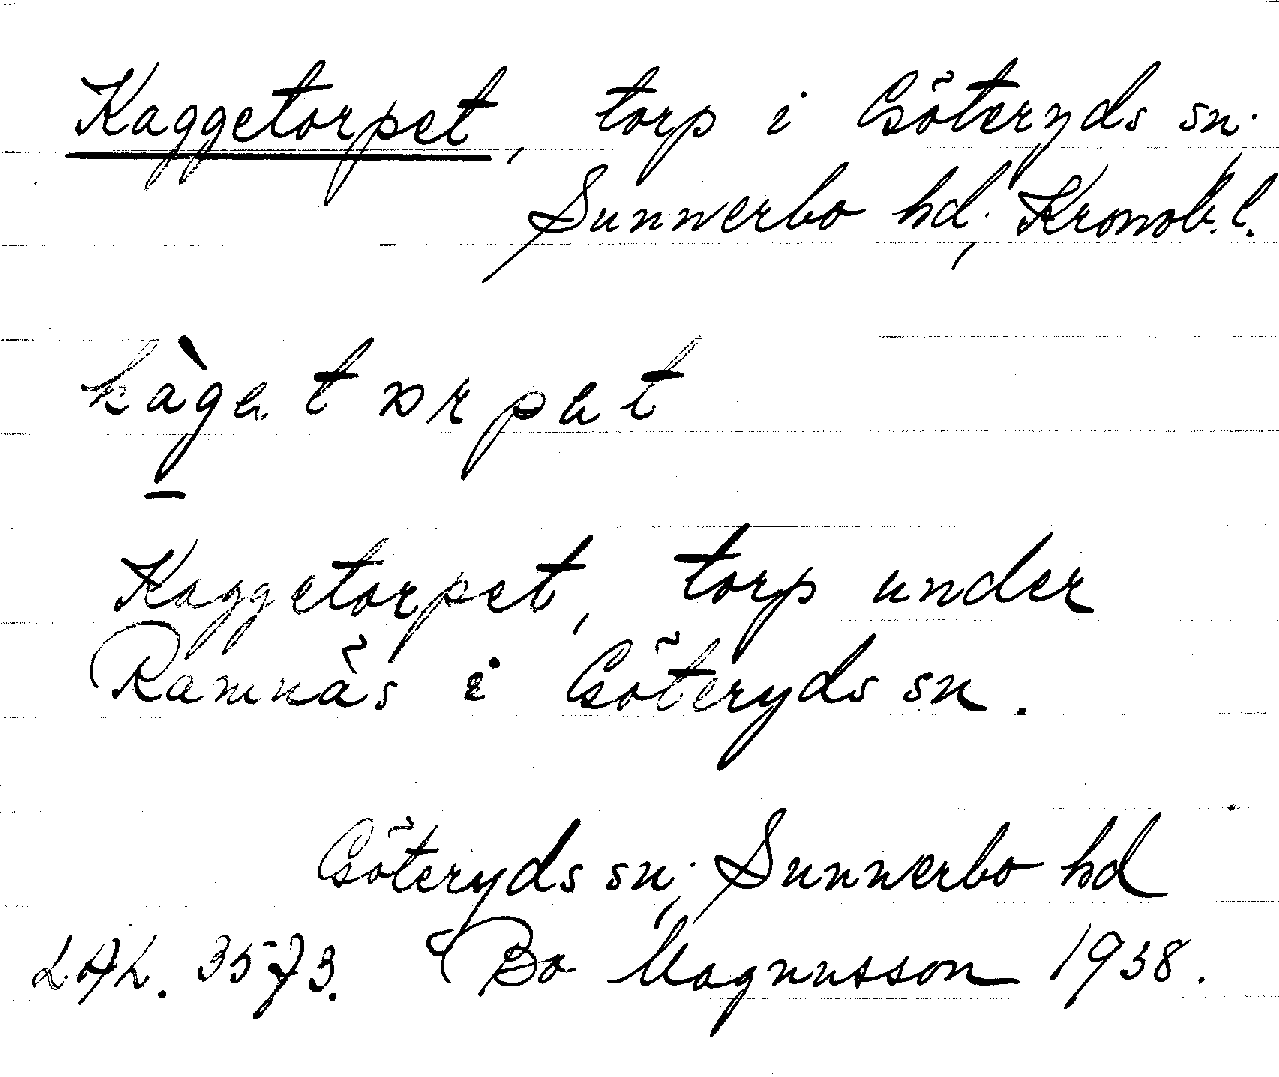 Kaggetorpet, torp i Göteryds sn.
Sunnerbo hd, Kronob. l.
kàgətɔrpət
Kaggetorpet, torp under
Ramnäs i Göteryds sn.
Göteryds sn, Sunnerbo hd
LAL. 3573. Bo Magnusson 1938.